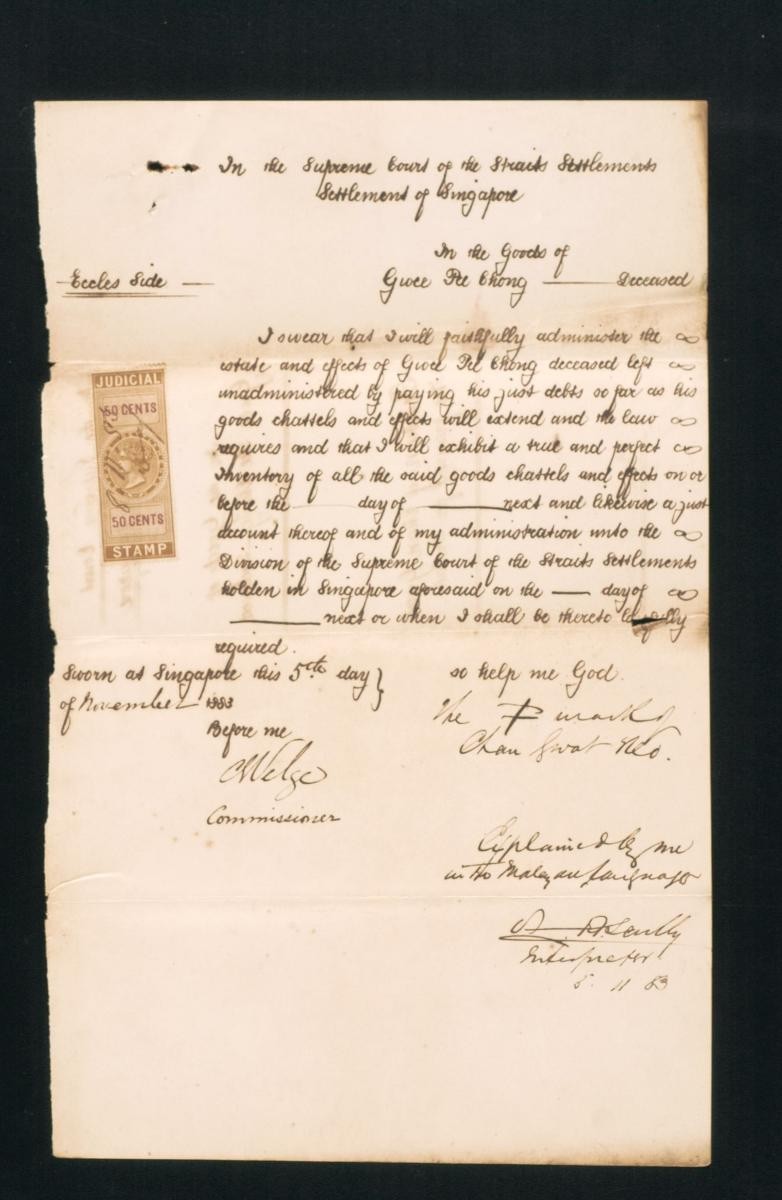 In the Supreme Court of the Straits Settlements
Settlement of Singapore
In the Goods of
Eccles Side — Gwee Pee Chong —— Deceased
I swear that I will faithfully administer the
estate and effects of Gwee Pee Chong deceased left
unadministered by paying his just debts so far as his
goods chattels and effects will extend and the law
requires and that I will exhibit a true and perfect
Inventory of all the said goods chattels and effects on or
before the —— day of —— next and likewise a just
account thereof and of my administration unto the
Division of the Supreme Court of the Straits Settlements
holden in Singapore aforesaid on the — day of
—— next or when I shall be thereto lawfully
required.
JUDICIAL
50 CENTS
50 CENTS
STAMP
Sworn at Singapore this 5th day
of November 1883
Before me
Commissioner
so help me God.
The mark of
Chan Neo.
Explained by me
in the Malayan language
Interpreter
5 11 83